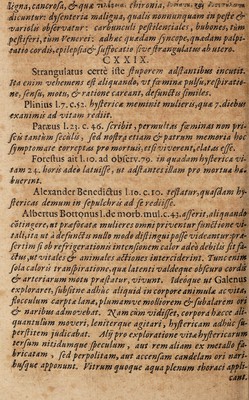 ligna, cancrosa, & quæ
dicuntur dysenteria maligna, qualis nonnunquam in peste &
variolis observatur: carbunculi pestilentales, bubones, tùm
pestiferi, tùm Venerei: adhæc quædam syncope, quædam palpi-
tatio cordis, epilepsia & suffocatio sive strangulatus ab utero.
CXXIX.
Strangulatus certè iste stuporem adstantibus incutit.
Ita enim vehemens est aliquando, ut fœmina pulsu, respiratio-
ne, sensu, motu, & ratione careant, defunctis similes.
Plinius l.7. c.52. hystericæ meminit mulieris, quæ 7. diebus
exanimis ad vitam rediit.
Paræus l.23. c.46. scribit, permultas fœminas non pri-
scis tantùm seculis, sed nostra etiam & patrum memoria hoc
symptomate correptas pro mortuis, etsi viverent, elatas esse.
Forestus ait l.10. ad observ.79. in quadam hysterica vi-
tam 24. horis adeò latuisse, ut adstantes illam pro mortua ha-
buerint.
Alexander Benedictus l.10. c.10. testatur, quasdam hy-
stericas demum in sepulchris ad se rediisse.
Albertus Bottonus l. de morb. mul. c.43. asserit, aliquando
côtingere, ut præfocatæ mulieres omni priventur functione vi-
tali, ita ut à defunctis nullo modo distingui posse videantur: præ-
sertim si ob refrigerationis intensionem calor adeò debilis sit fa-
ctus, ut vitales & animales actiones interciderint. Tunc enim
sola caloris transpiratione, qua latenti valdeque obscuro cordis
& arteriarum motu præstatur, vivunt. Ideoque ut Galenus
exploraret, subsitne adhuc aliquid in corpore animalæ ac vitæ,
flocculum carptæ lanæ, plumamve molliorem & subalarem ori
& naribus admovebat. Nam cùm vidisset, corpora hæcce ali-
quantulum moveri, leniterque agitari, hystericam adhuc su-
perstitem judicabat. Alij pro exploratione vitæ hystericarum
tersum nitidumque speculum, aut rem aliam ex metallo fa-
bricatam, sed perpolitam, aut accensam candelam ori nari-
busque apponunt. Vitrum quoque aqua plenum thoraci appli-
cant